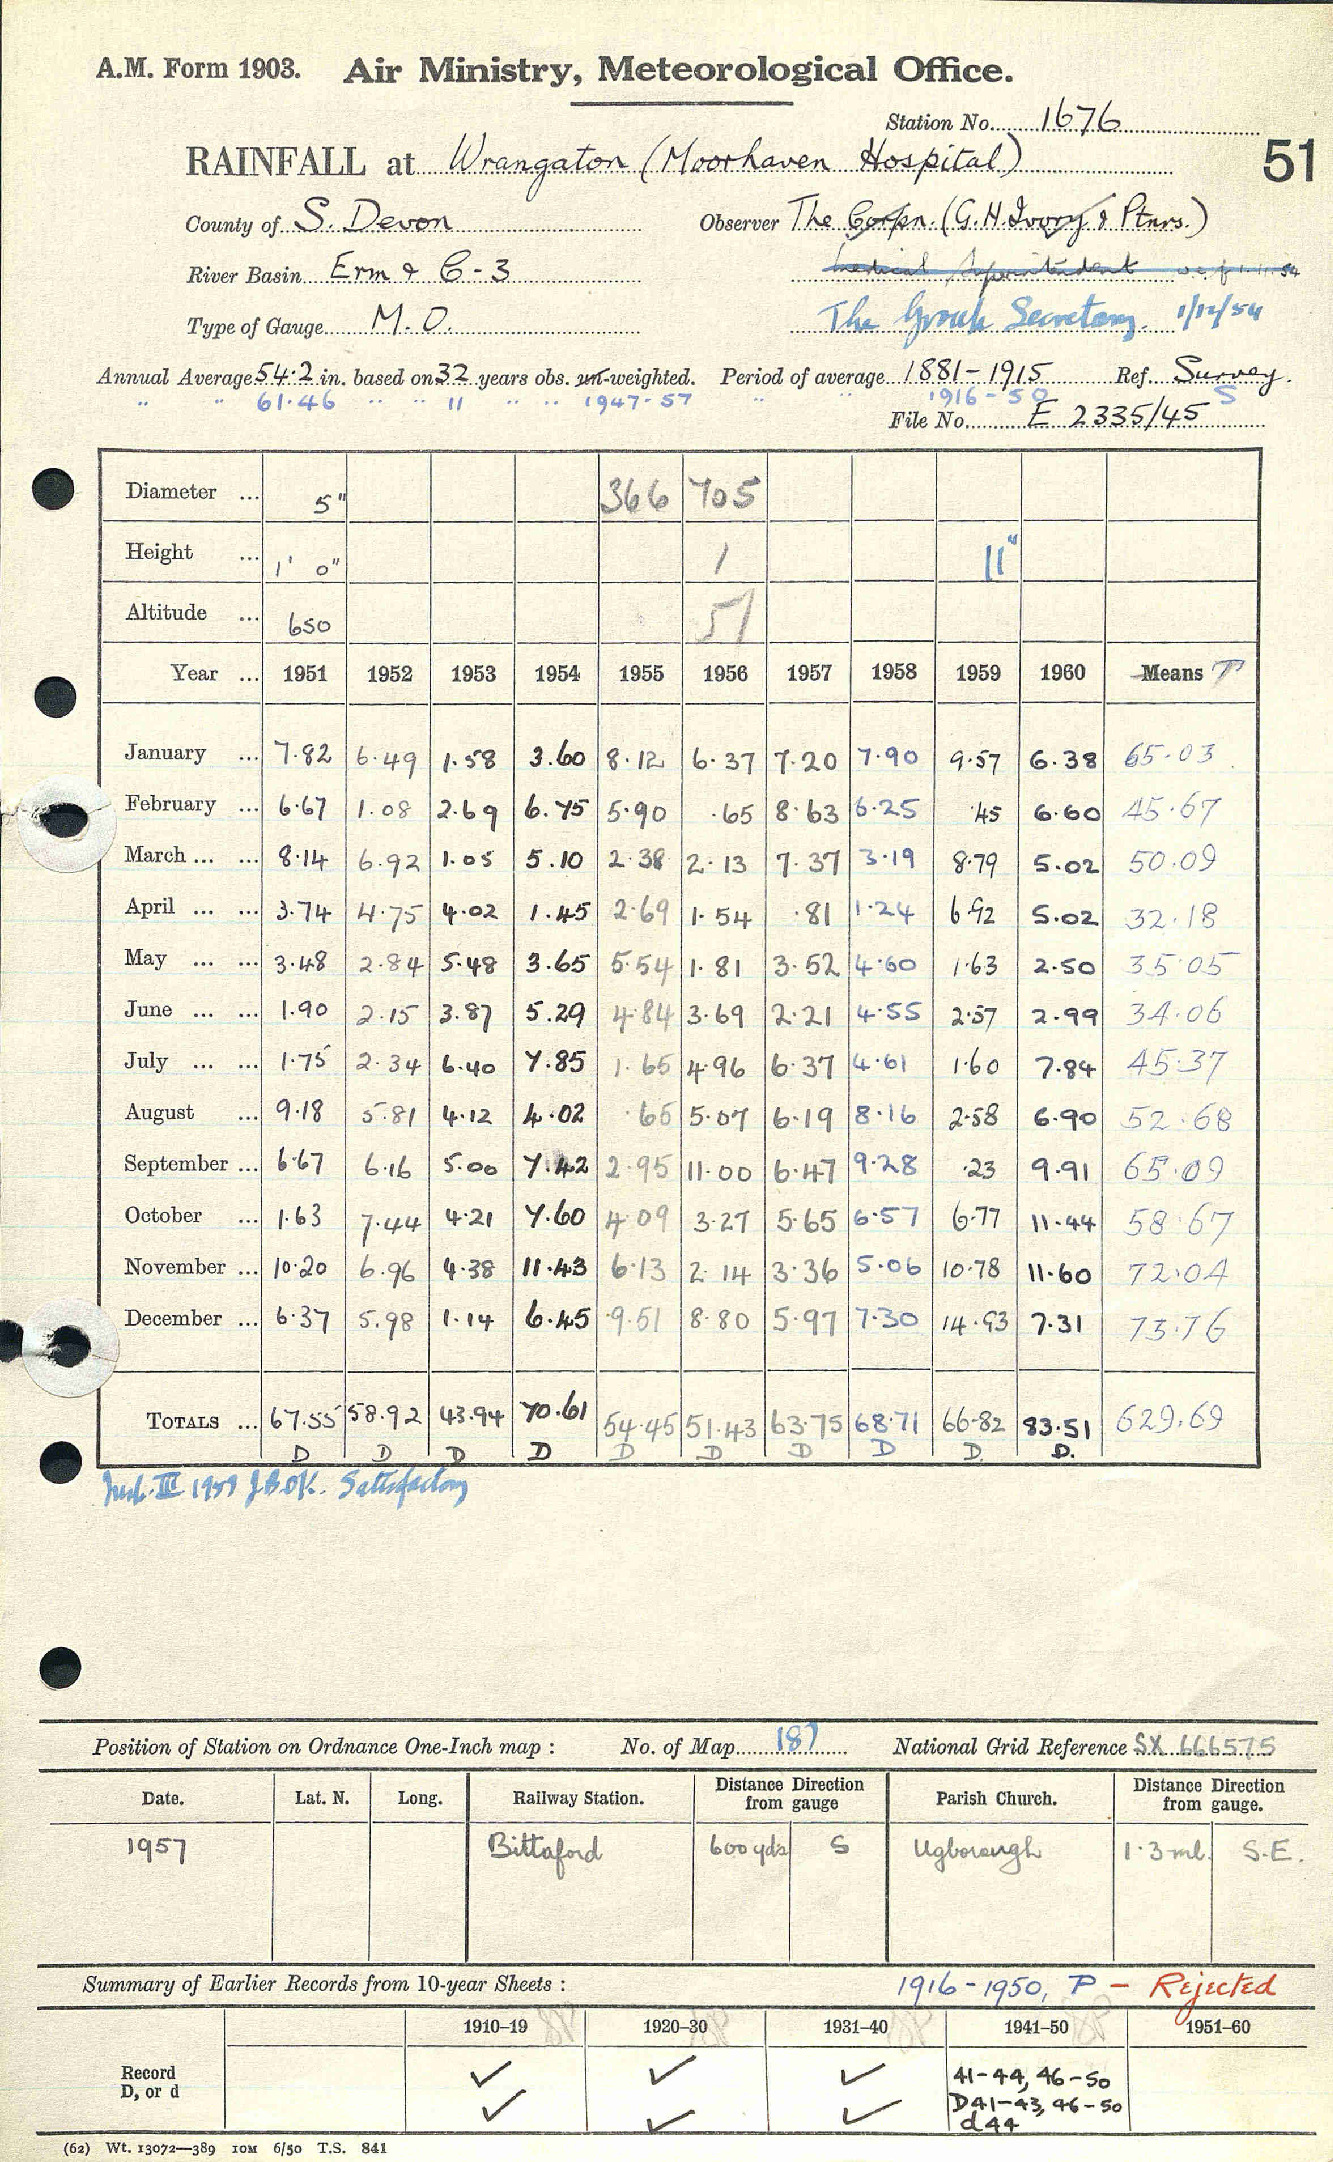 A.M. Form 1903. Air Ministry, Meteorological Office.
Station No. 1676
RAINFALL at Wrangaton (Moorhaven Hospital)
51
County of S. Devon Observer The Corpn. (G.H. Ivory & Ptnrs.)
River Basin Erm & C-3 Medical Superintendent w.e.f 1.11.54
Type of Gauge M.O. The Group Secretary. 1/12/54
Annual Average 54.2 in. based on 32 years obs. un-weighted. Period of average 1881-1915 Ref. Survey.
" " 61.46 " " 11 " " 1947-57 " " 1916-50 S
File No. E 2335/45
Diameter ... 5" 366 705
Height ... 1' 0" 1 11"
Altitude ... 650 51
Year ... 1951 1952 1953 1954 1955 1956 1957 1958 1959 1960 Means T
January ... 7.82 6.49 1.58 3.60 8.12 6.37 7.20 7.90 9.57 6.38 65.03
February ... 6.67 1.08 2.69 6.75 5.90 .65 8.63 6.25 .45 6.60 45.67
March ... ... 8.14 6.92 1.05 5.10 2.38 2.13 7.37 3.19 8.79 5.02 50.09
April ... ... 3.74 4.75 4.02 1.45 2.69 1.54 .81 1.24 6.92 5.02 32.18
May ... ... 3.48 2.84 5.48 3.65 5.54 1.81 3.52 4.60 1.63 2.50 35.05
June ... ... 1.90 2.15 3.87 5.29 4.84 3.69 2.21 4.55 2.57 2.99 34.06
July ... ... 1.75 2.34 6.40 7.85 1.65 4.96 6.37 4.61 1.60 7.84 45.37
August ... 9.18 5.81 4.12 4.02 .65 5.07 6.19 8.16 2.58 6.90 52.68
September ... 6.67 6.16 5.00 7.42 2.95 11.00 6.47 9.28 .23 9.91 65.09
October ... 1.63 7.44 4.21 7.60 4.09 3.27 5.65 6.57 6.77 11.44 58.67
November ... 10.20 6.96 4.38 11.43 6.13 2.14 3.36 5.06 10.78 11.60 72.04
December ... 6.37 5.98 1.14 6.45 9.51 8.80 5.97 7.30 14.93 7.31 73.76
TOTALS ... 67.55 58.92 43.94 70.61 54.45 51.43 63.75 68.71 66.82 83.51 629.69
D D D D D D D D D. D.
Insp. III 1959 J.B.OK. Satisfactory
Position of Station on Ordnance One-Inch map : No. of Map 187 National Grid Reference SX 666575
Date. Lat. N. Long. Railway Station. Distance Direction from gauge Parish Church. Distance Direction from gauge.
1957 Bittaford 600 yds S Ugborough 1.3 ml. S.E.
Summary of Earlier Records from 10-year Sheets : 1916-1950, P - Rejected
1910–19 1920–30 1931–40 1941–50 1951–60
Record ✓ ✓ ✓ 41-44, 46-50
D, or d ✓ ✓ ✓ D41-43, 46-50
d44
(62) Wt. 13072—389 10M 6/50 T.S. 841